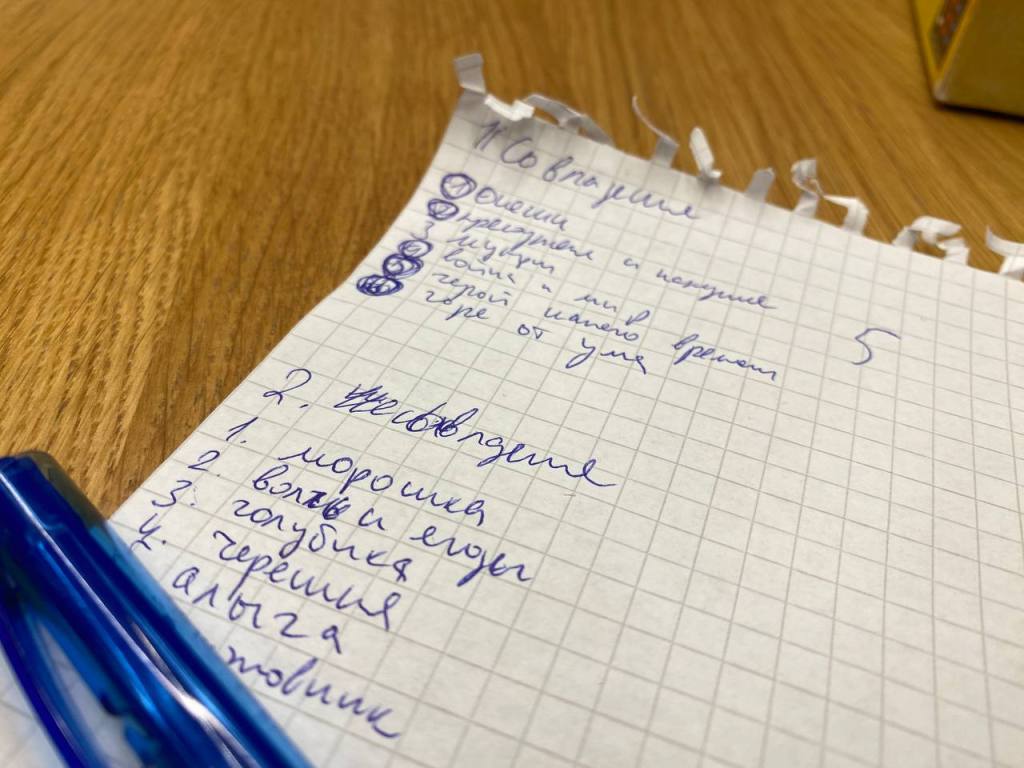 1. Совпадения
1 Онегин
2 преступлен и наказание
3 мцыри
4 война и мир
5 герой нашего времени
6 горе от ума
5
2. несовпадения
1. морошка
2. волчьи ягоды
3. голубика
4. черешня
алыча
жовник